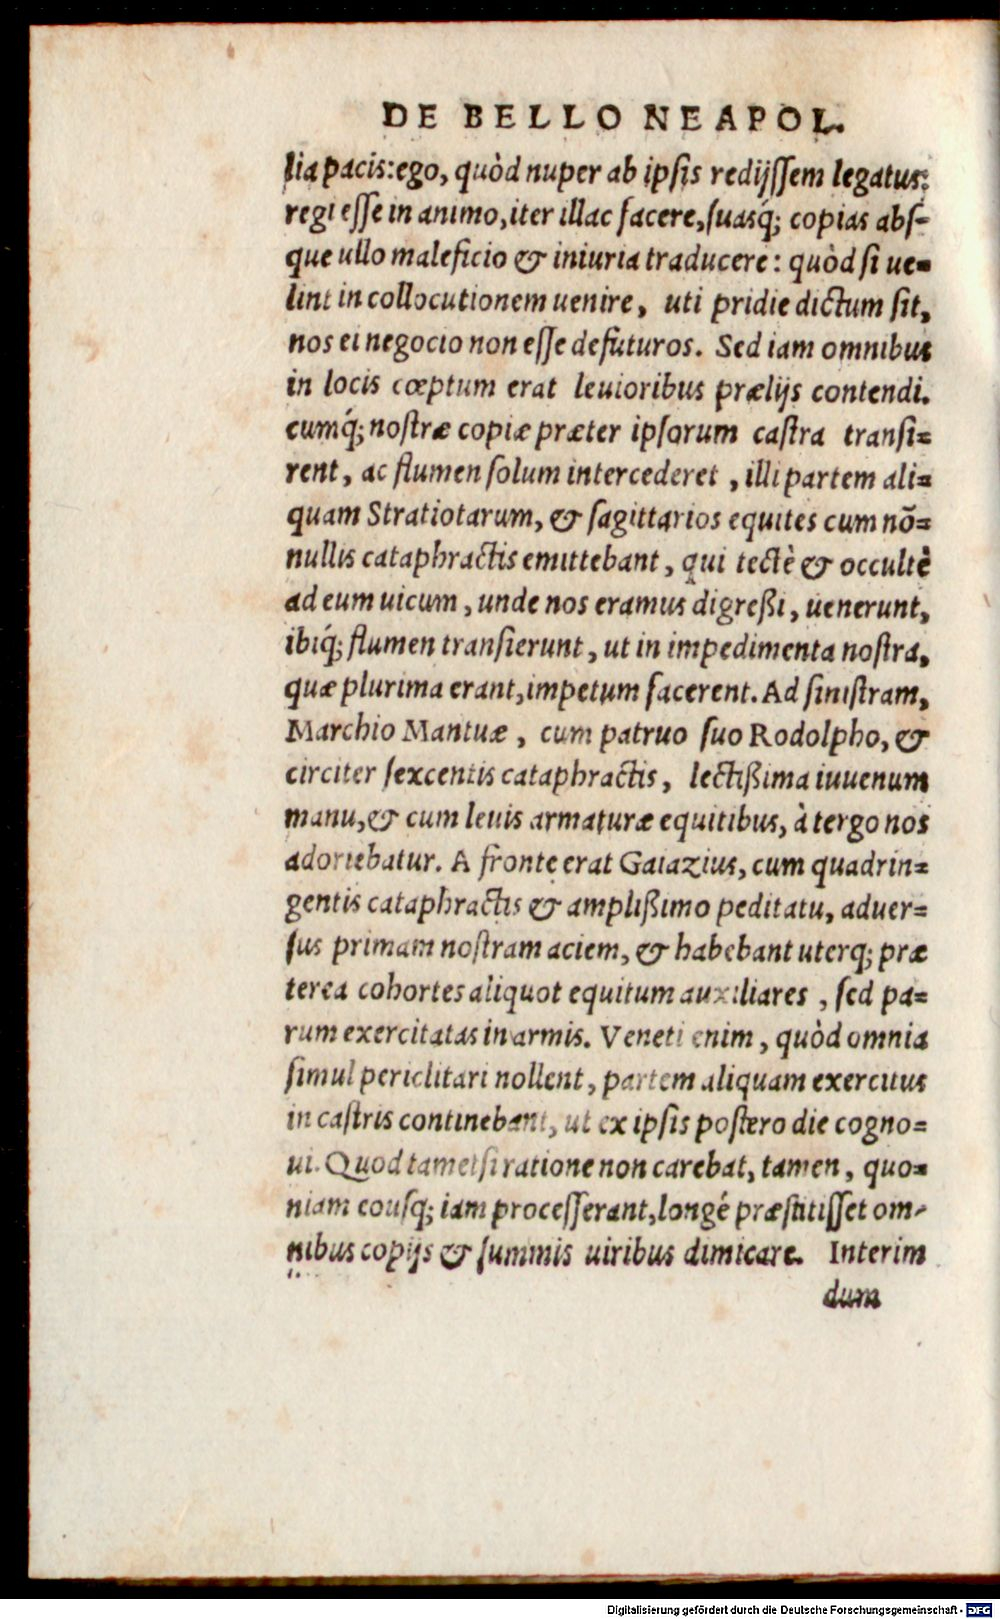 DE BELLO NEAPOL.
lia pacis: ego, quòd nuper ab ipsis redijssem legatus:
regi esse in animo, iter illac facere, suasq́; copias abs-
que ullo maleficio & iniuria traducere: quòd si ue=
lint in collocutionem uenire, uti pridie dictum sit,
nos ei negocio non esse defuturos. Sed iam omnibus
in locis cœptum erat leuioribus prælijs contendi.
cumq́; nostræ copiæ præter ipsorum castra transi=
rent, ac flumen solum intercederet, illi partem ali=
quam Stratiotarum, & sagittarios equites cum nō=
nullis cataphractis emittebant, qui tectè & occultè
ad eum uicum, unde nos eramus digreßi, uenerunt,
ibiq́; flumen transierunt, ut in impedimenta nostra,
quæ plurima erant, impetum facerent. Ad sinistram,
Marchio Mantuæ, cum patruo suo Rodolpho, &
circiter sexcentis cataphractis, lectißima iuuenum
manu, & cum leuis armaturæ equitibus, à tergo nos
adoriebatur. A fronte erat Gaiazius, cum quadrin=
gentis cataphractis & amplißimo peditatu, aduer=
sus primam nostram aciem, & habebant uterq; præ
terea cohortes aliquot equitum auxiliares, sed pa=
rum exercitatas in armis. Veneti enim, quòd omnia
simul periclitari nollent, partem aliquam exercitus
in castris continebant, ut ex ipsis postero die cogno=
ui. Quod tametsi ratione non carebat, tamen, quo=
niam eousq; iam processerant, longé præstitisset om-
nibus copijs & summis uiribus dimicare. Interim
dum
Digitalisierung gefördert durch die Deutsche Forschungsgemeinschaft - DFG